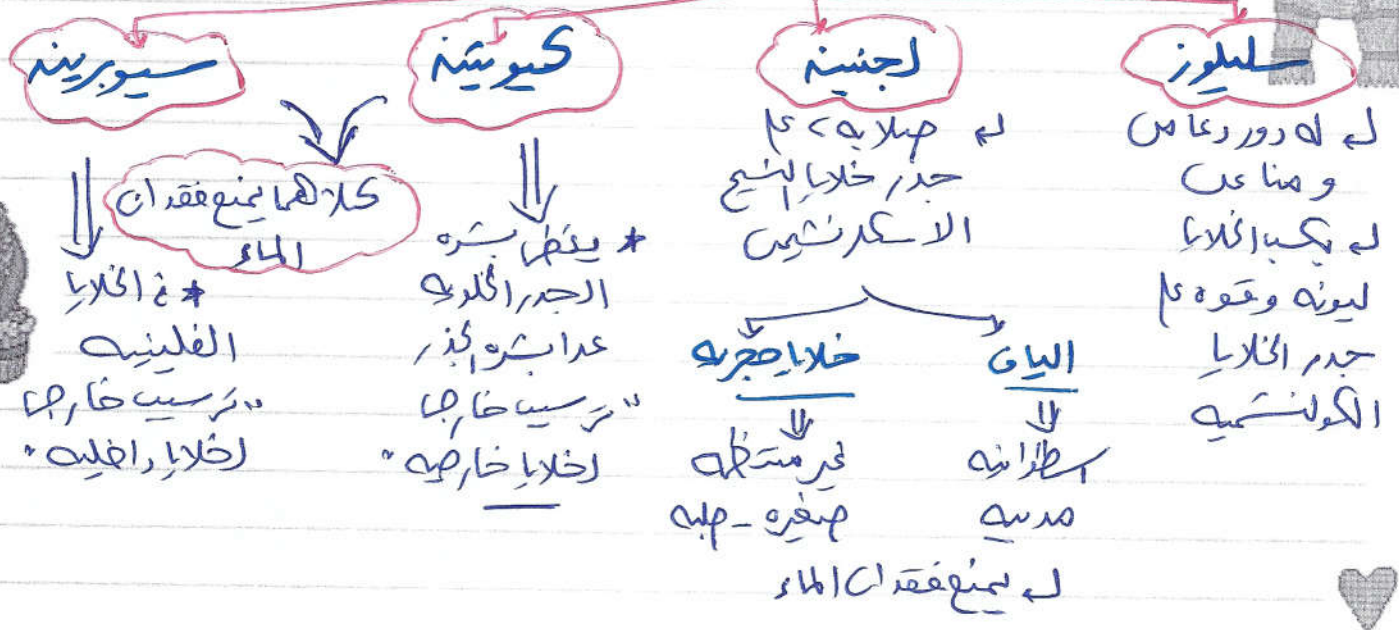 سليلوز
له دور دعامي
ومناعي
يكسب الخلايا
ليونه وقوه
جدر الخلايا
الكولنشميه
لجنينه
صلابه
جدر خلايا النسيج
الاسكلرنشيمي
الياف
اسطوانيه
مدببه
خلايا حجريه
غير منتظمه
صغيره - صلبه
يمنع فقدان الماء
كيوتينه
* يغطي بشره
الجدر الخلويه
عدا بشره الجذر
"ترسيب خارجي
لخلايا خارجيه"
سيوبرينه
* في الخلايا
الفلينيه
"ترسيب خارجي
لخلايا داخليه"
كلاهما يمنع فقدان
الماء